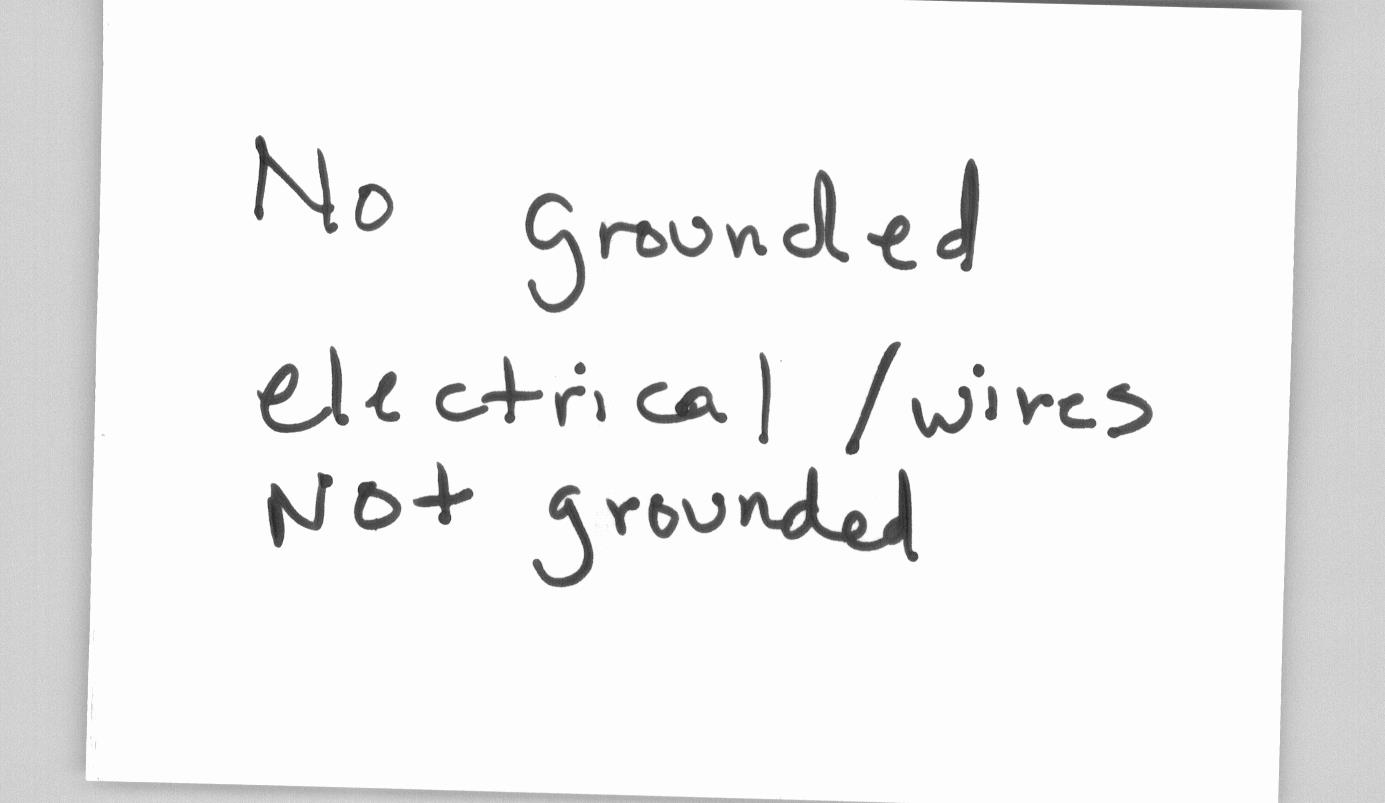 No grounded
electrical / wires
Not grounded